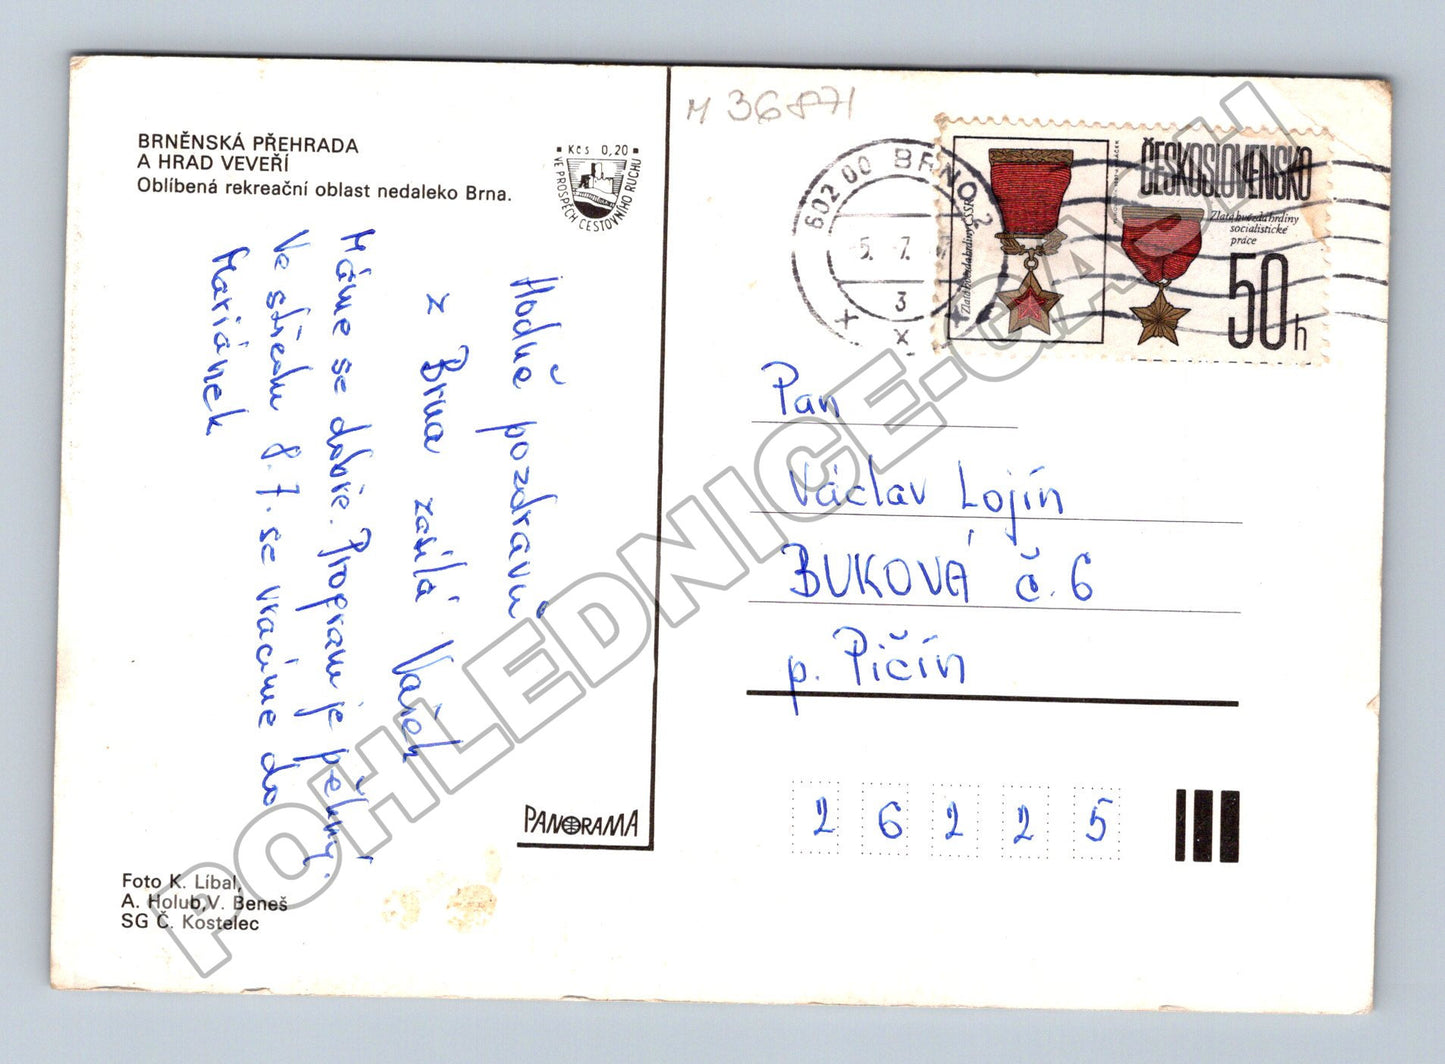 BRNĚNSKÁ PŘEHRADA
A HRAD VEVEŘÍ
Oblíbená rekreační oblast nedaleko Brna.
Kčs 0,20
VE PROSPĚCH CESTOVNÍHO RUCHU
M 36871
602 00 BRNO 2
-5. -7.
3
ČESKOSLOVENSKO
Zlatá hvězda hrdiny ČSSR
Zlatá hvězda hrdiny
socialistické
práce
50h
Hodně pozdravů
z Brna zasílá Vašek
Máme se dobře. Program je pěkný.
Ve středu 8.7. se vracíme do
Mariánek
Pan
Václav Lojín
BUKOVÁ č. 6
p. Pičín
26225
PANORAMA
Foto K. Líbal,
A. Holub, V. Beneš
SG Č. Kostelec
POHLEDNICE-CASH